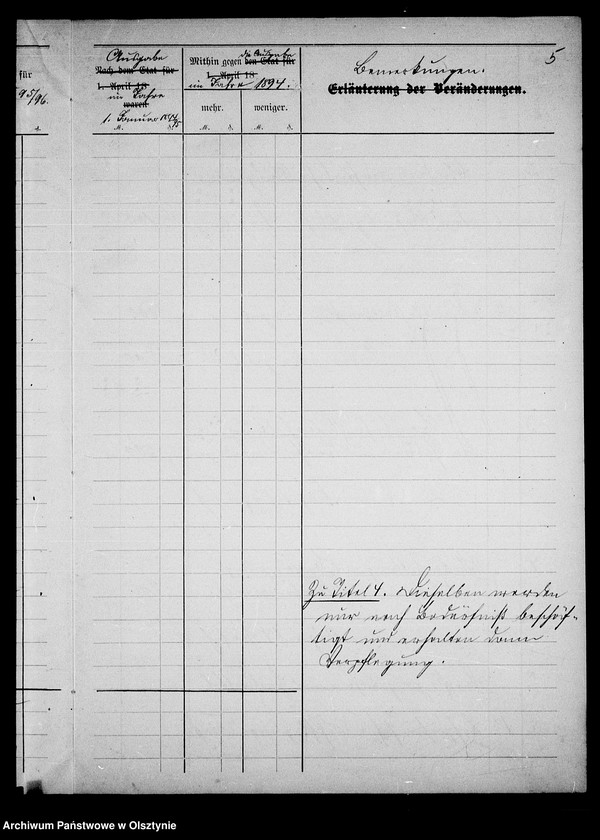 5
für
95/96.
Ausgabe
Nach dem Etat für
1. April 18
im Jahre
waren
1. Januar 1894/95
M. ₰.
die Ausgabe
Mithin gegen den Etat für
1. April 18
im Jahre 1894.
mehr. weniger.
M. ₰. M. ₰.
Bemerkungen.
Erläuterung der Veränderungen.
Zu Titel 4. Dieselben werden
nur nach Bedürfniß beschäf-
tigt und erhalten dann
Verpflegung.
Archiwum Państwowe w Olsztynie